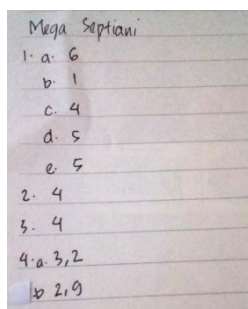 Mega Septiani
1. a. 6
b. 1
c. 4
d. 5
e. 5
2. 4
3. 4
4. a. 3,2
b 2,9